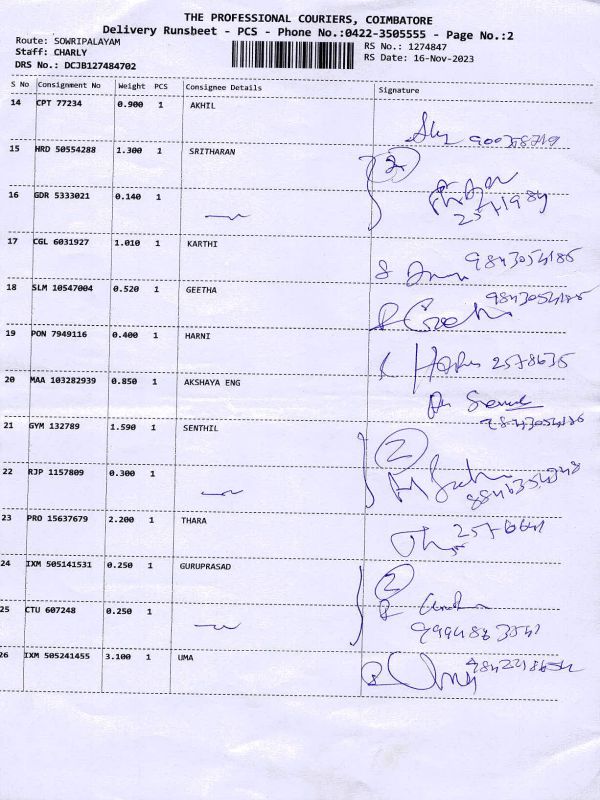 THE PROFESSIONAL COURIERS, COIMBATORE
Delivery Runsheet - PCS - Phone No.:0422-3505555 - Page No.:2
Route: SOWRIPALAYAM
Staff: CHARLY
DRS No.: DCJB127484702
RS No.: 1274847
RS Date: 16-Nov-2023
S No Consignment No Weight PCS Consignee Details Signature
14 CPT 77234 0.900 1 AKHIL
15 HRD 50554288 1.300 1 SRITHARAN 2
16 GDR 5333021 0.140 1
17 CGL 6031927 1.010 1 KARTHI 9843054186
18 SLM 10547004 0.520 1 GEETHA 9843054186
19 PON 7949116 0.400 1 HARNI 2578635
20 MAA 103282939 0.850 1 AKSHAYA ENG
9843054186
21 GYM 132789 1.590 1 SENTHIL 2
22 RJP 1157809 0.300 1
23 PRO 15637679 2.200 1 THARA
24 IXM 505141531 0.250 1 GURUPRASAD 2
25 CTU 607248 0.250 1
26 IXM 505241455 3.100 1 UMA